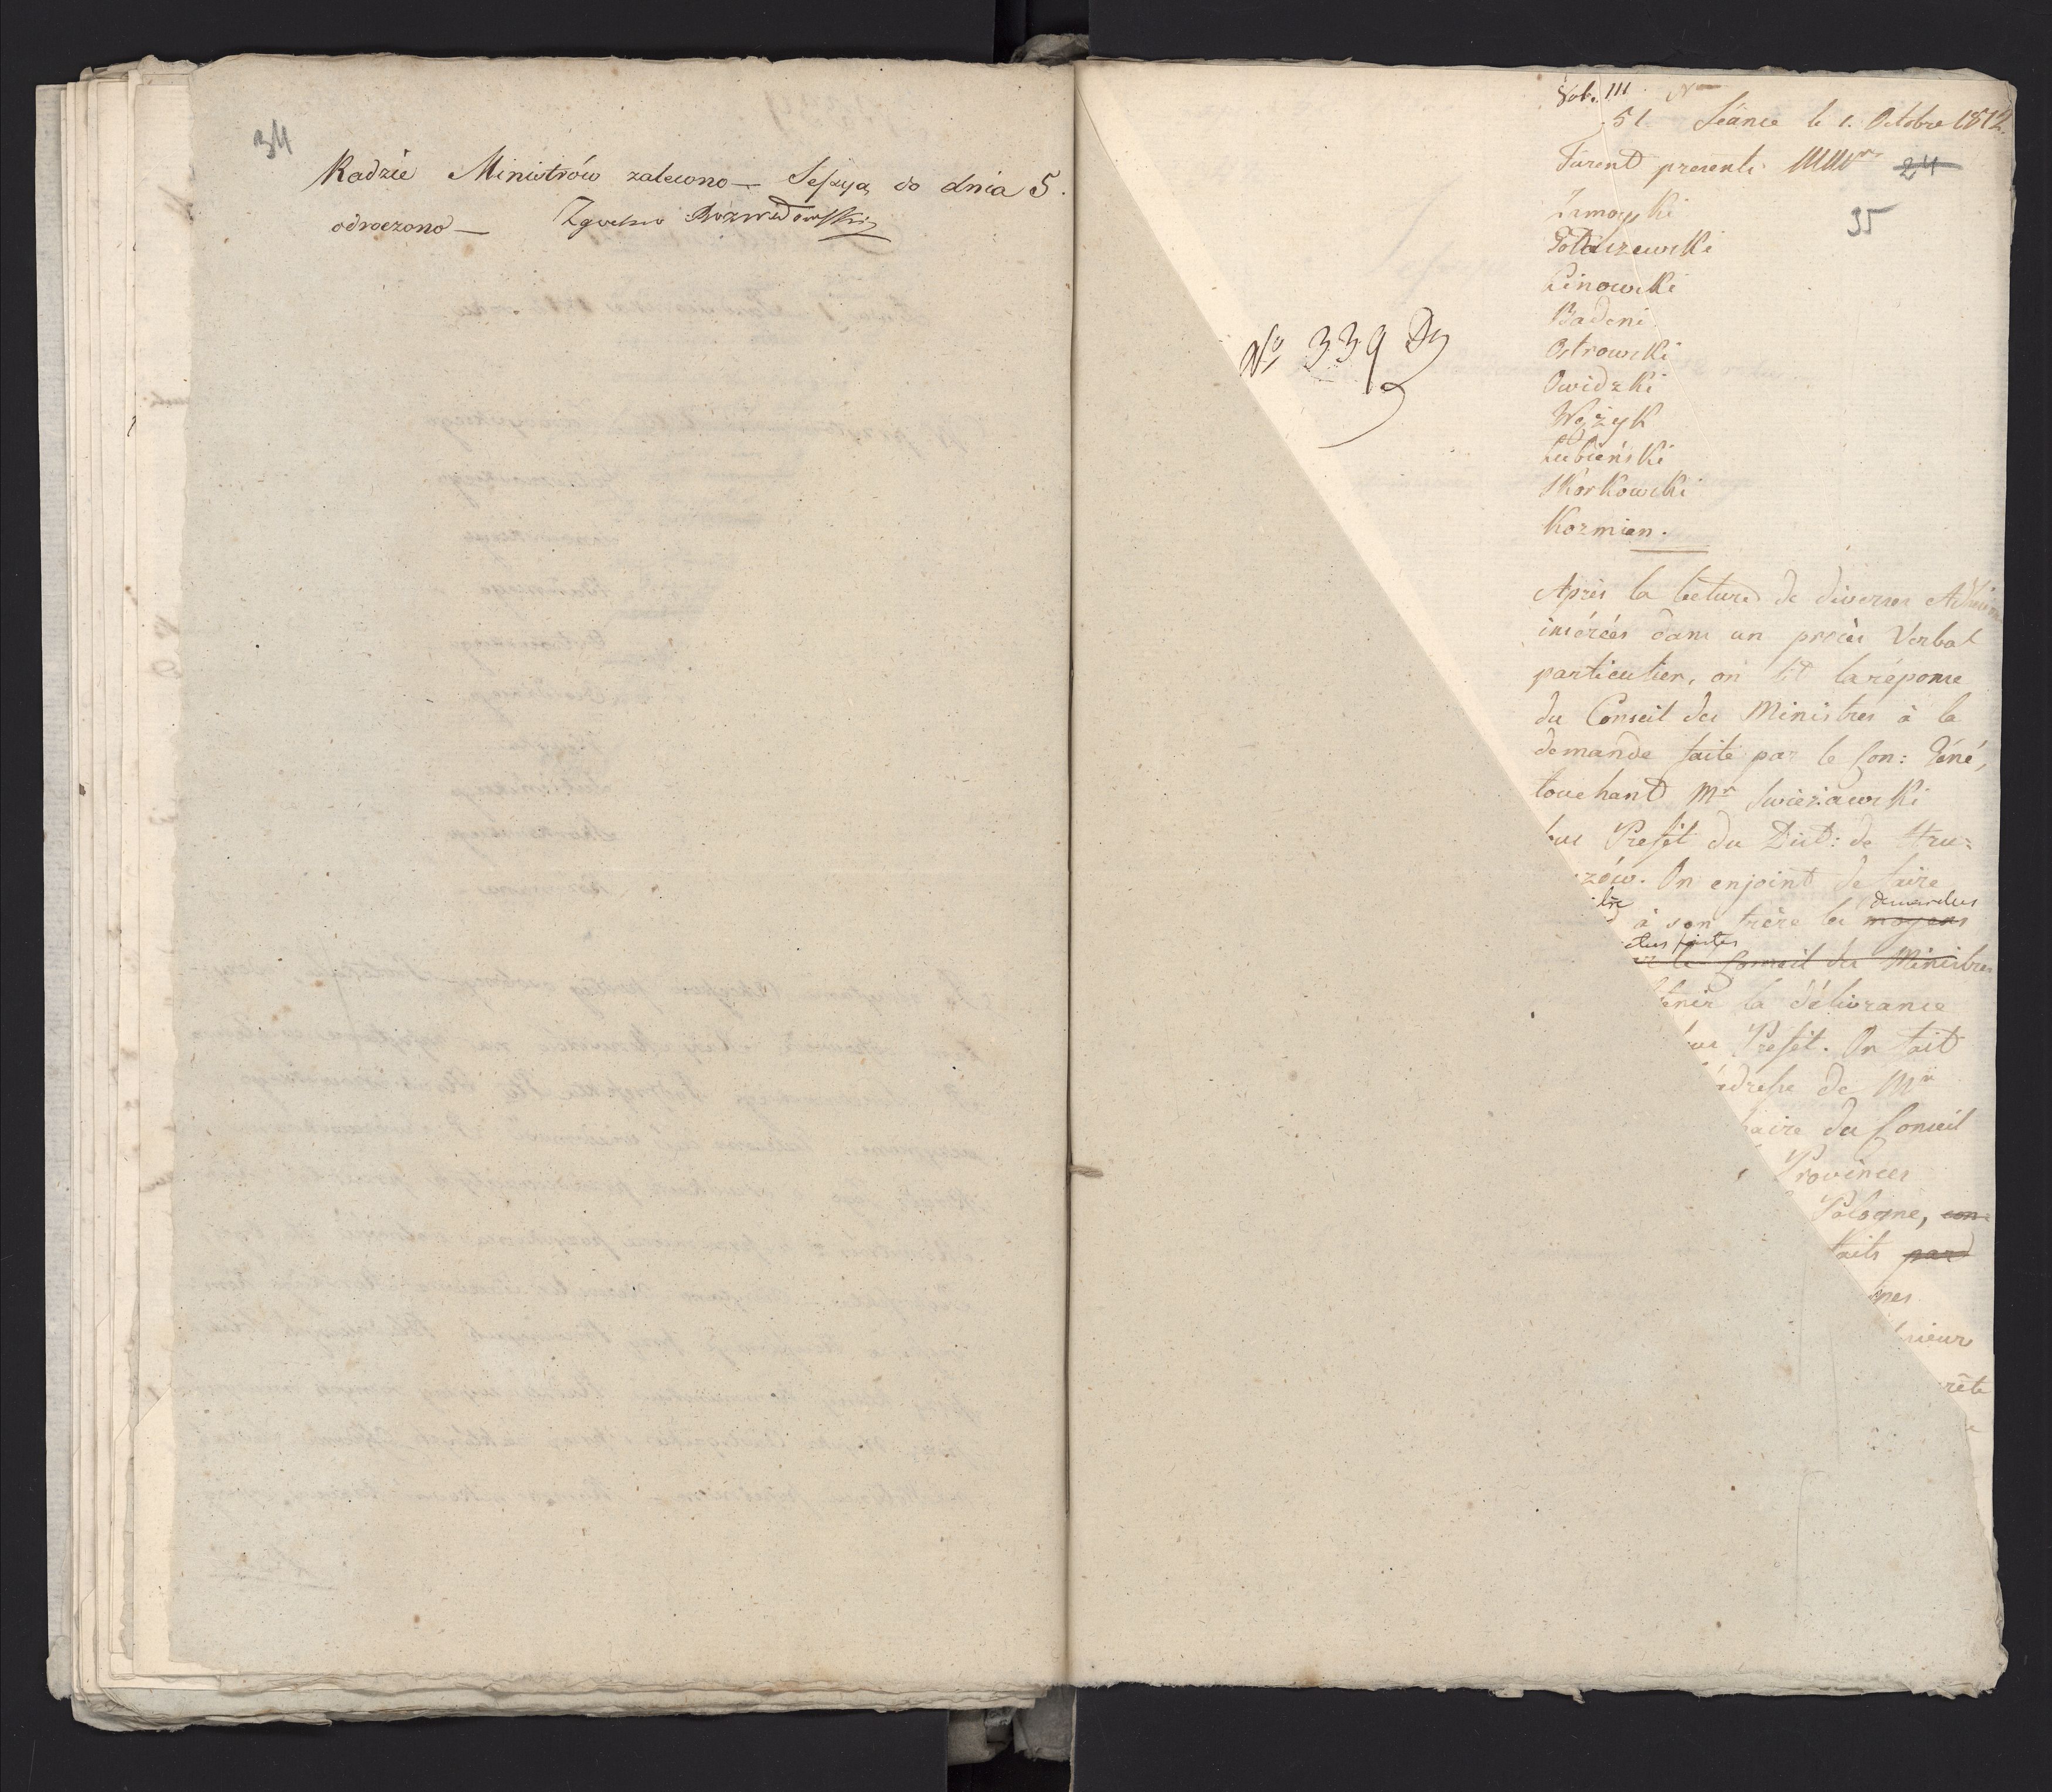 34
Radzie Ministrów zalecono — Sessya do dnia 5.
odroczono — Zgodno Rozwadowski
Vol. III. N
51. Séance le 1. Octobre 1812.
Furent presents MMrs 24
35
Zamoyski
Gołaszewski
Linowski
Badeni
Ostrowski
Owidzki
Wężyk
Łubieński
Skorkowski
Kozmian.
No 339 Dz
Après la lecture de diverses Adhésions
insérées dans un procès Verbal
particulier, on lit la réponse
du Conseil des Ministres à la
demande faite par le Con: Géné,
touchant Mr Swieżawski
Prefêt du Dist: de Hru=
zów. On enjoint de faire
demandes
à son frère les moyens
faites
le Conseil des Ministres
tenir la délivrance
Prefêt. On fait
adresse de Mr
taire du Conseil
Provinces
Pologne, con
faits par
nes
rieur
rête